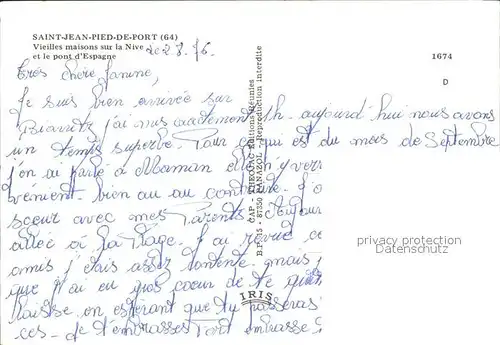 SAINT-JEAN-PIED-DE-PORT (64)
Vieilles maisons sur la Nive
et le pont d'Espagne
le 2 8 76.
1674
D
Très chère Janine,
Je suis bien arrivée sur
Biarritz j'ai mis exactement 7h. aujourd'hui nous avons
un temps superbe. Pour ce qui est du mois de Septembre
j'en ai parlé à Maman elle n'y verra
bien au contraire. J'
soeur avec mes Parents.
allée à la Plage. J'ai revue
amis j'étais assez contente. mais
que j'ai eu gros coeur de te
laisse en espérant que tu passeras
ces- je t'embrasse fort
CAP - THEOJAC Editions Réunies
B.P. 15 - 87350 PANAZOL - Reproduction interdite
IRIS
privacy protection
Datenschutz